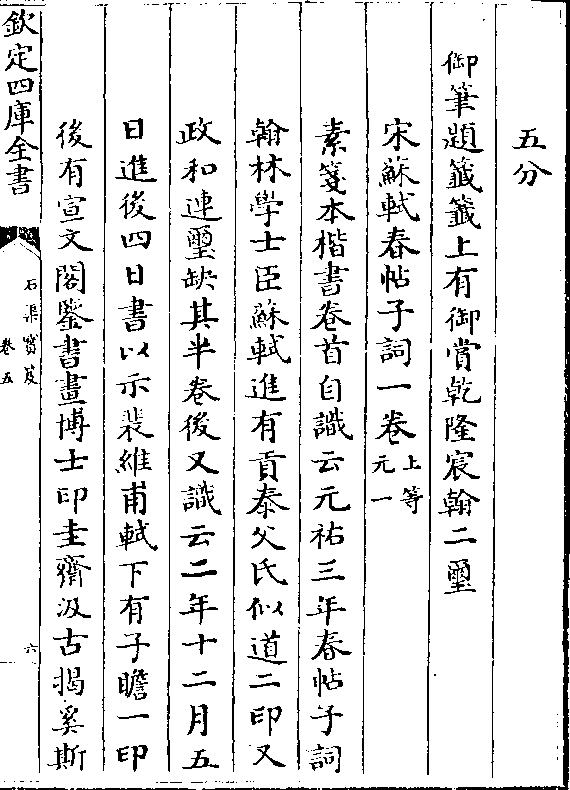 五分
御筆題籤籤上有御賞乾隆宸翰二璽
宋蘇軾春帖子詞一卷上等
元一
素箋本楷書卷首自識云元祐三年春帖子詞
翰林學士臣蘇軾進有貢泰父氏似道二印又
政和連璽缺其半卷後又識云二年十二月五
日進後四日書以示裴維甫軾下有子瞻一印
後有宣文閣鑒書畫博士印圭齋汲古揭奚斯
欽定四庫全書
石渠寳笈
卷五
六